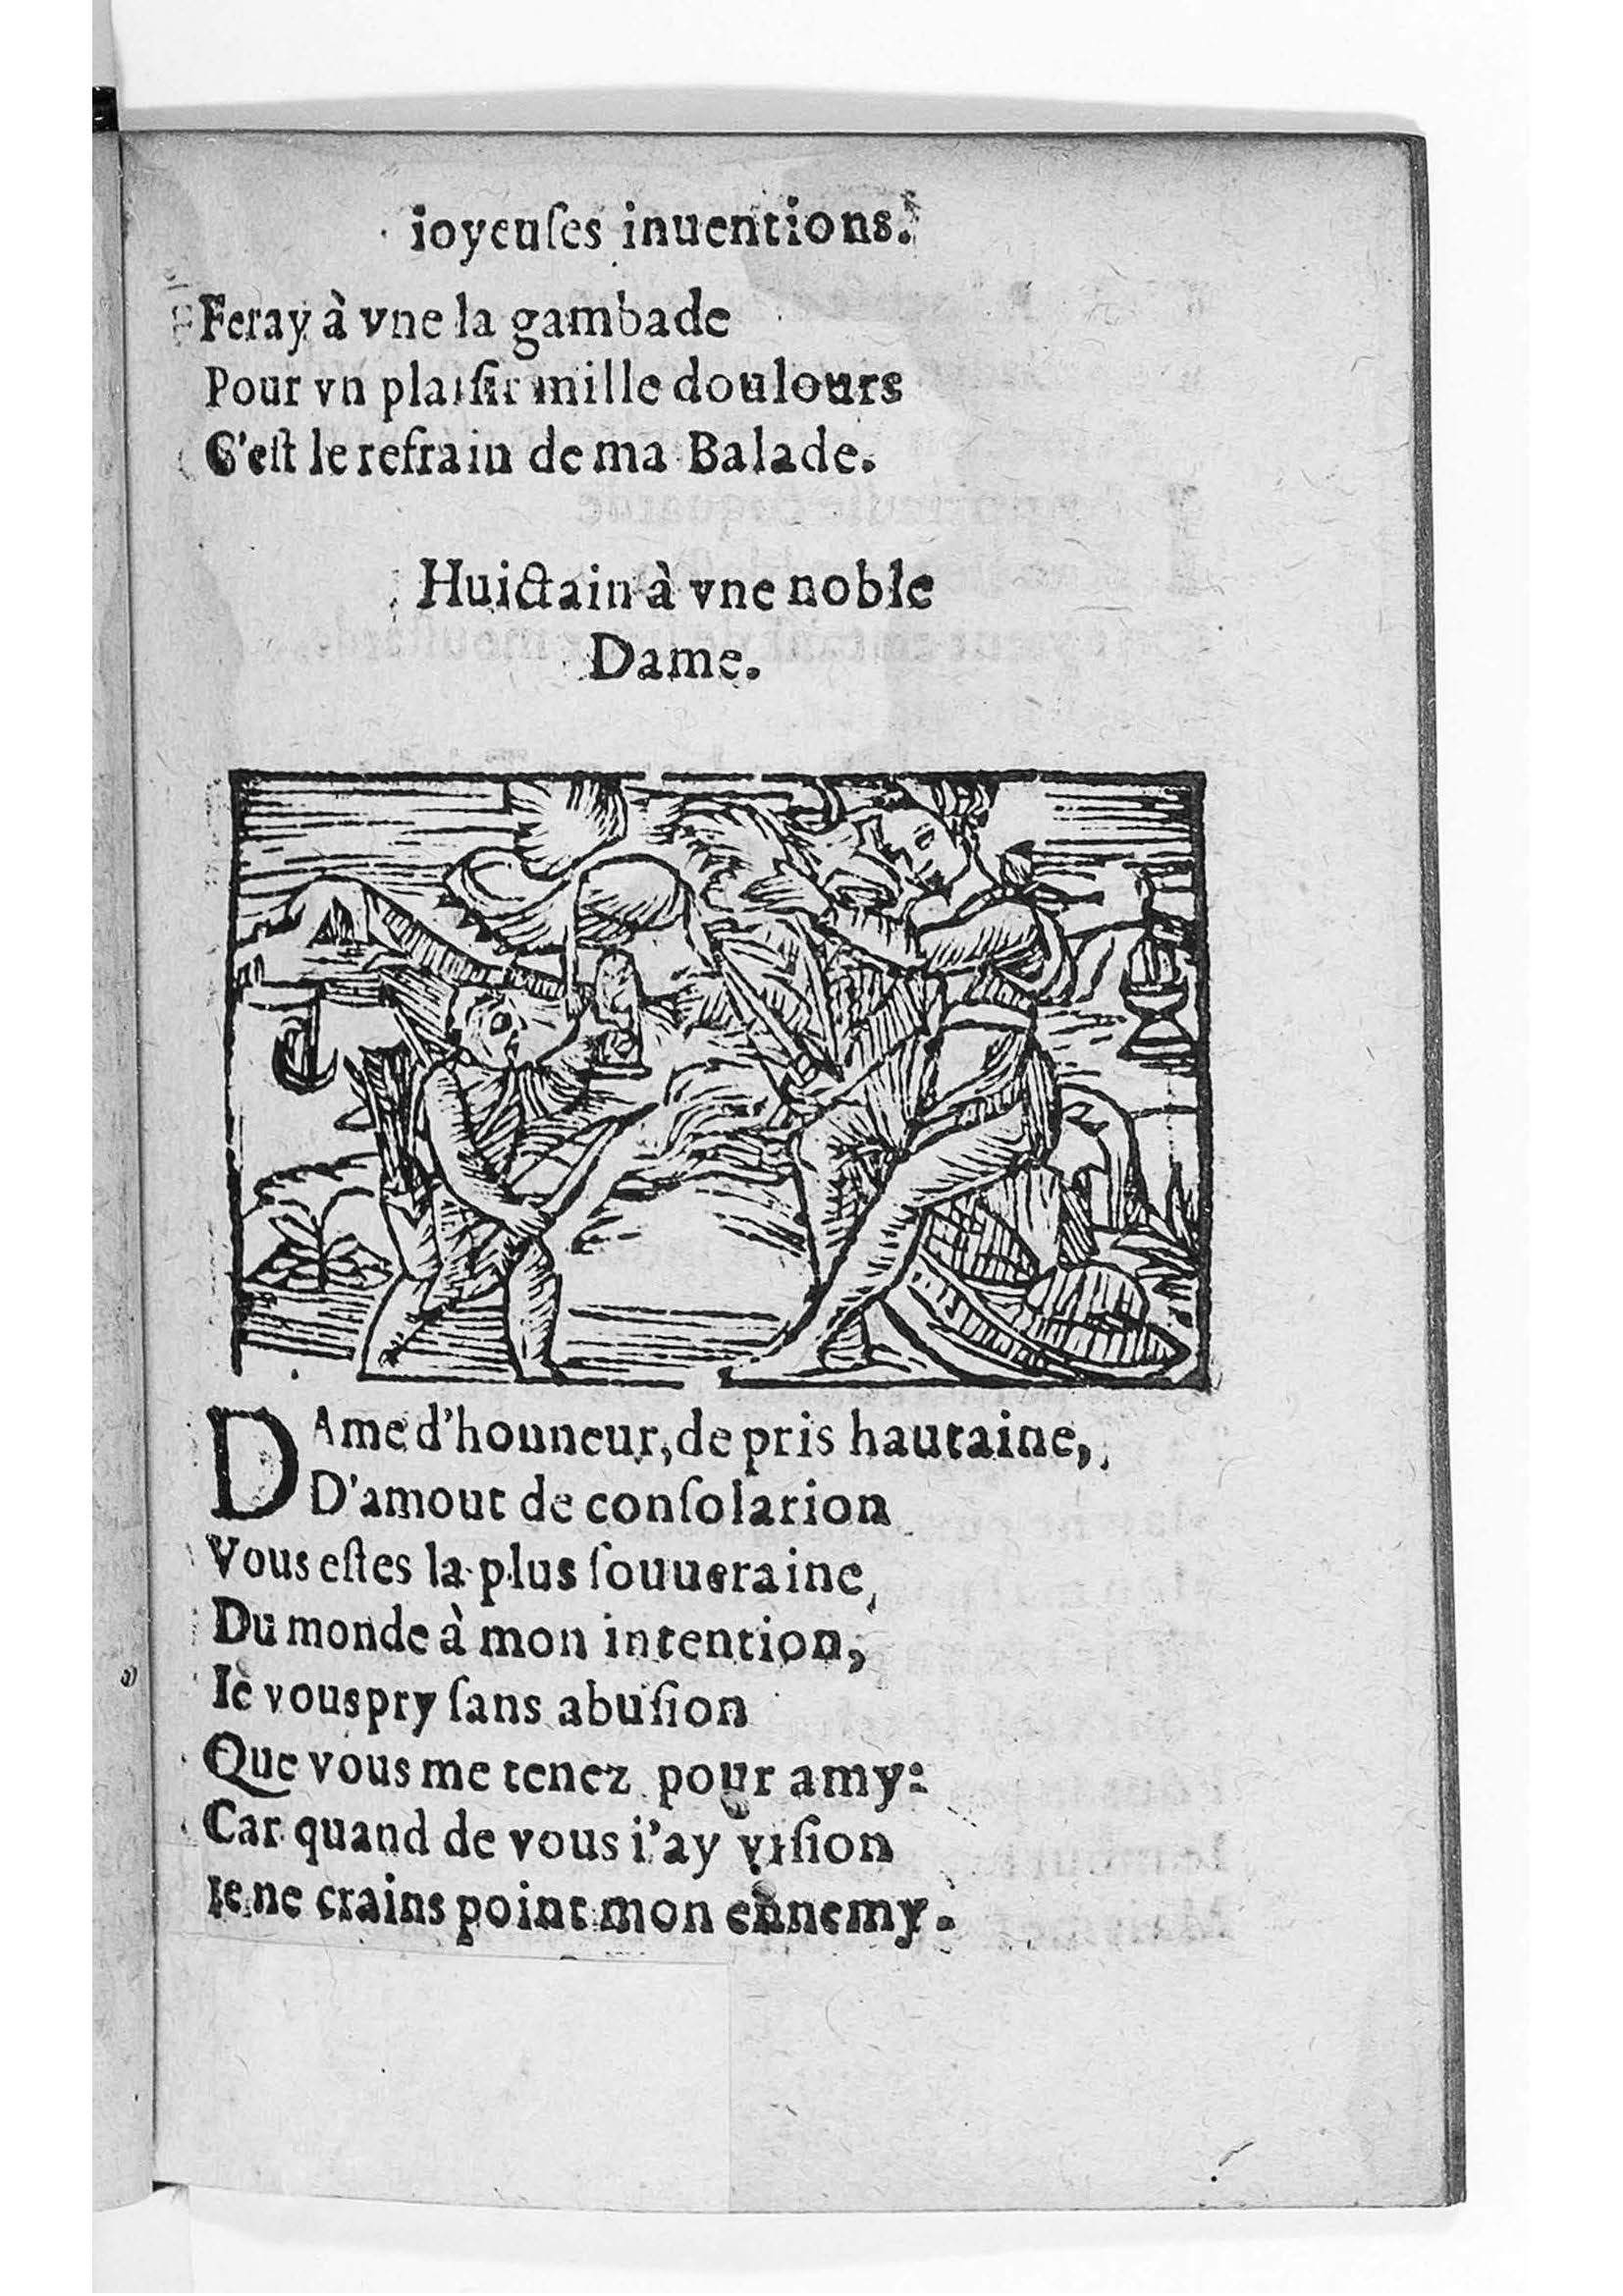 ioyeuſes inuentions.
Feray à vne la gambade
Pour vn plaiſir mille doulours
C'eſt le refrain de ma Balade.
Huictain à vne noble
Dame.
DAme d'houneur, de pris hautaine,
D'amout de conſolarion
Vous eſtes la plus ſouueraine,
Du monde à mon intention,
Ie vous pry ſans abuſion
Que vous me tenez pour amy:
Car quand de vous i'ay viſion
Ie ne crains point mon ennemy.